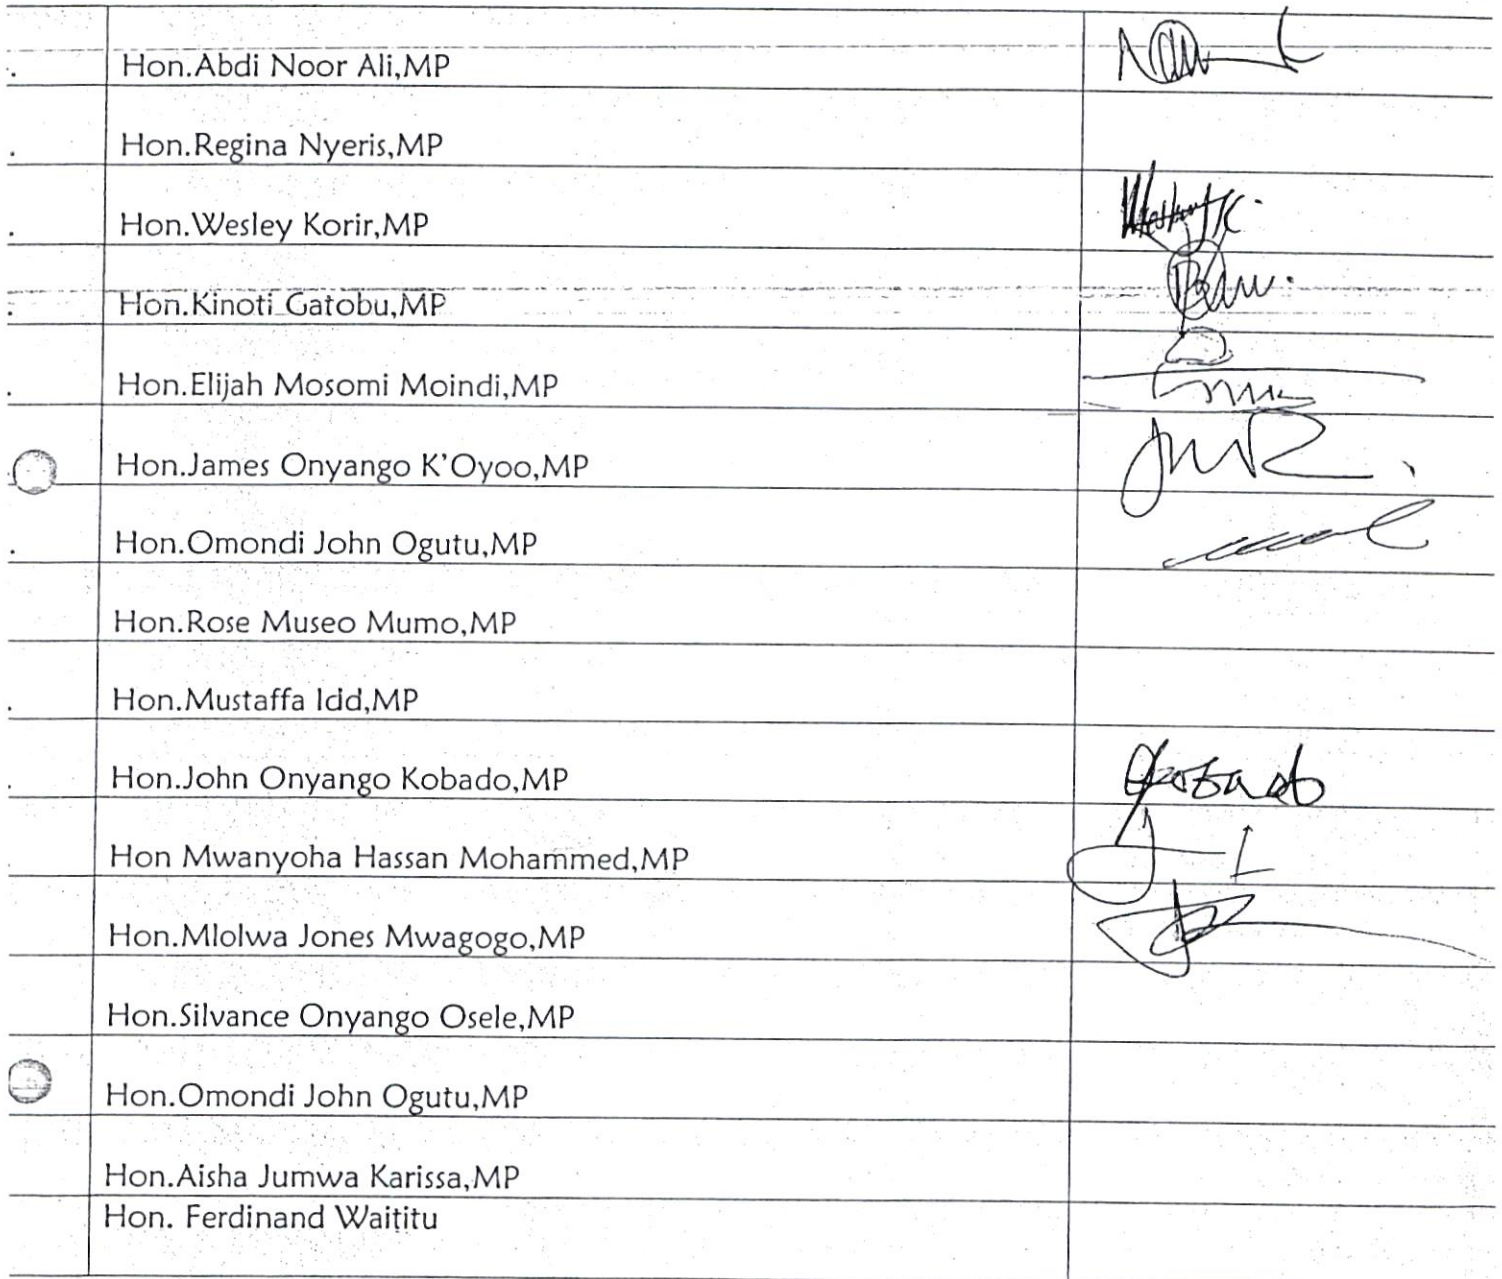 Hon.Abdi Noor Ali,MP
Hon.Regina Nyeris,MP
Hon.Wesley Korir,MP
Hon.Kinoti Gatobu,MP
Hon.Elijah Mosomi Moindi,MP
Hon.James Onyango K'Oyoo,MP
Hon.Omondi John Ogutu,MP
Hon.Rose Museo Mumo,MP
Hon.Mustaffa Idd,MP
Hon.John Onyango Kobado,MP
Hon Mwanyoha Hassan Mohammed,MP
Hon.Mlolwa Jones Mwagogo,MP
Hon.Silvance Onyango Osele,MP
Hon.Omondi John Ogutu,MP
Hon.Aisha Jumwa Karissa,MP
Hon. Ferdinand Waititu